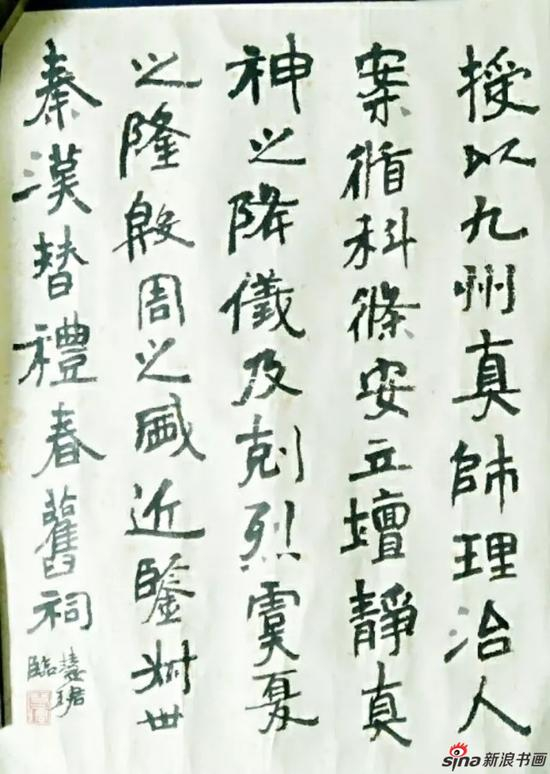 授以九州真師理治人
案循科條安立壇靜真
神之降儀及剋烈虞夏
之隆殷周之盛近鑒叔世
秦漢替禮春舊祠
慧珺
臨
sina 新浪书画